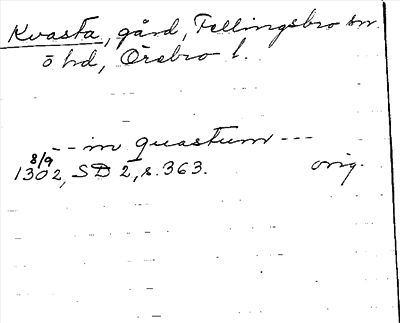 Kvasta, gård, Fellingsbro sn.
ö hd, Örebro l.
-- in quastum ---
8/9
1302, SD 2, s. 363. orig.